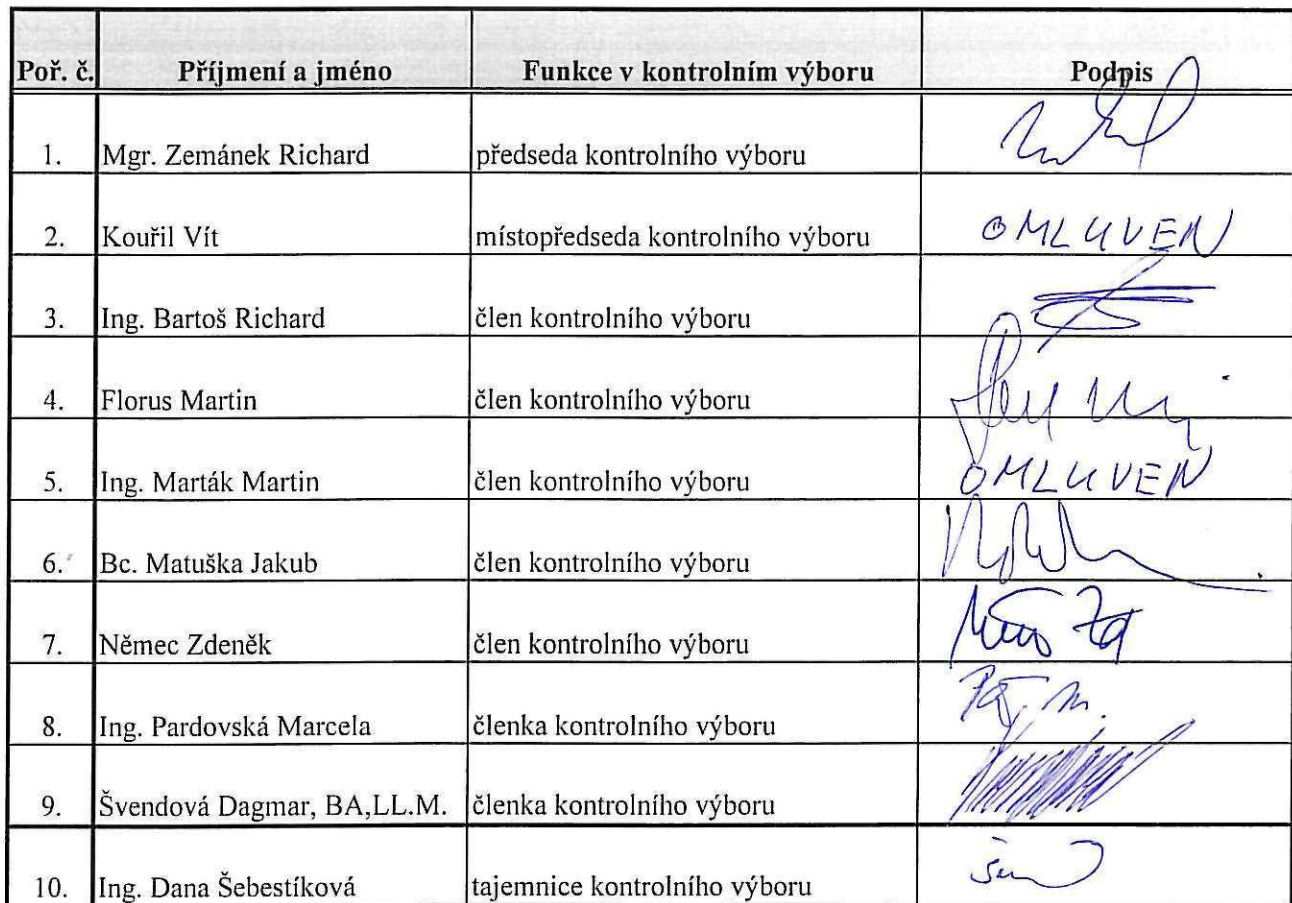 Poř. č. Příjmení a jméno Funkce v kontrolním výboru Podpis
1. Mgr. Zemánek Richard předseda kontrolního výboru
2. Kouřil Vít místopředseda kontrolního výboru OMLUVEN
3. Ing. Bartoš Richard člen kontrolního výboru
4. Florus Martin člen kontrolního výboru
5. Ing. Marták Martin člen kontrolního výboru OMLUVEN
6. Bc. Matuška Jakub člen kontrolního výboru
7. Němec Zdeněk člen kontrolního výboru
8. Ing. Pardovská Marcela členka kontrolního výboru
9. Švendová Dagmar, BA,LL.M. členka kontrolního výboru
10. Ing. Dana Šebestíková tajemnice kontrolního výboru